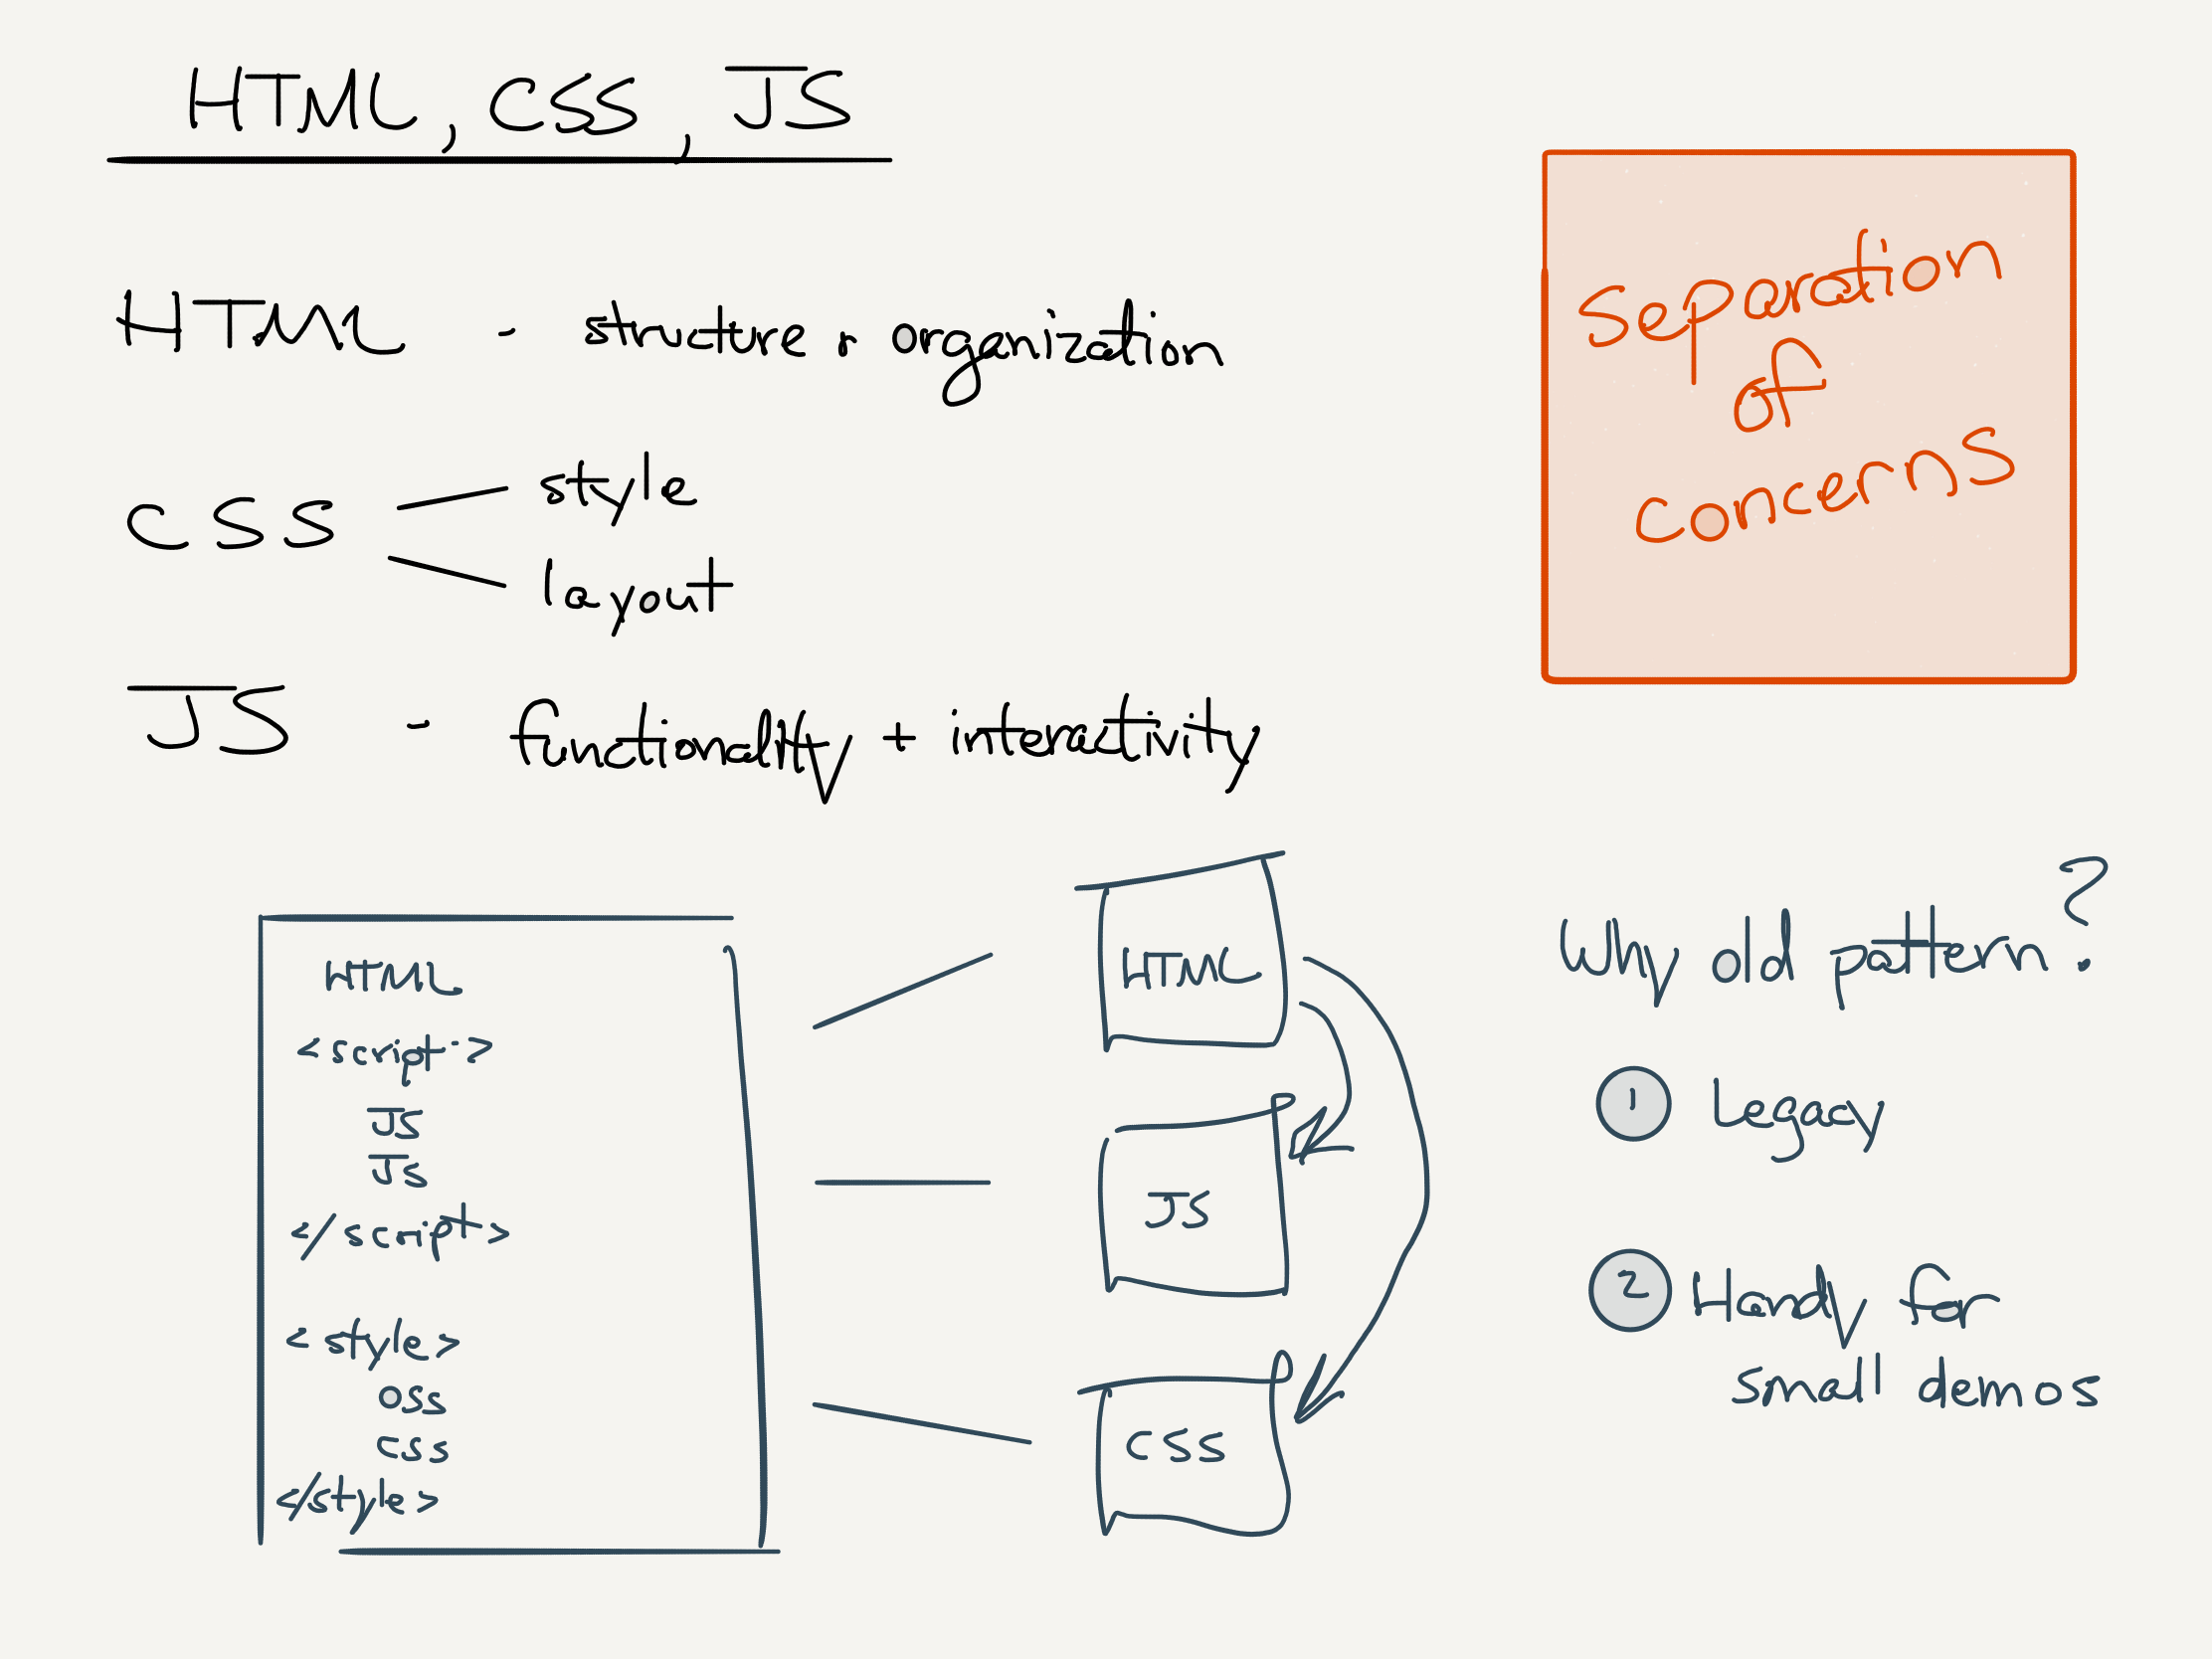 HTML, CSS, JS
HTML - structure n organization
CSS
style
layout
JS - functionality + interactivity
separation
of
concerns
HTML
<script>
JS
JS
</script>
<style>
css
css
</style>
HTML
JS
CSS
Why old pattern?
1 Legacy
2 Handy for
small demos